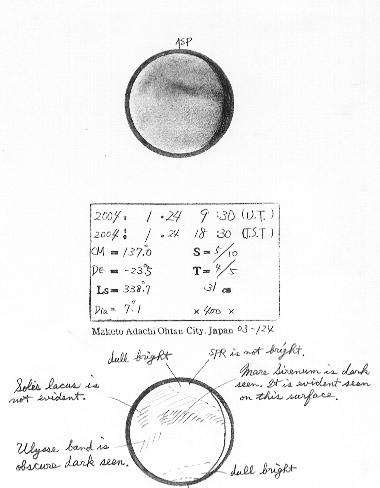 ↓SP
2004. 1 .24 9 :30 (U.T.)
2004. 1 .24 18 :30 (J.S.T)
CM = 137.0 S = 5/10
DE = -23.5 T = 4/5
Ls = 338.7 31 cm
Dia = 7".1 × 400 ×
Makoto Adachi Ohtsu City. Japan 03-124
dull bright
SPR is not bright.
Mare Sirenum is dark
seen. It is evident seen
on this surface.
Solis lacus is
not evident.
Ulysse band is
obscure dark seen.
dull bright